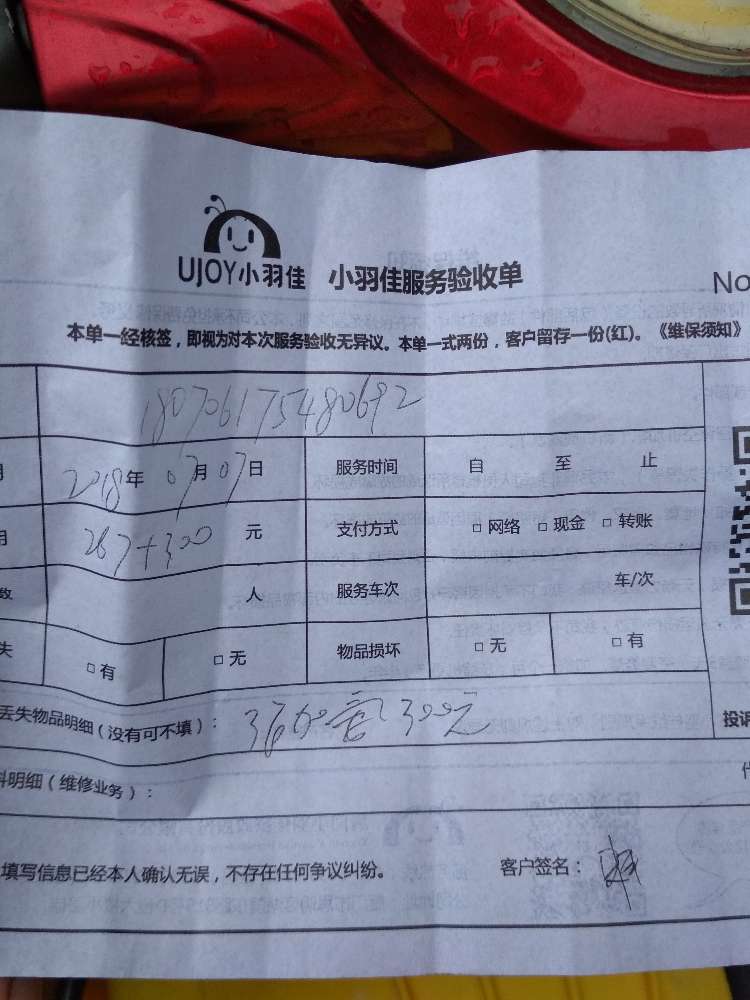 UJOY小羽佳 小羽佳服务验收单
No
本单一经核签，即视为对本次服务验收无异议。本单一式两份，客户留存一份(红)。《维保须知》
180706175480692
2018年07月07日 服务时间 自 至 止
267+300 元 支付方式 □网络 □现金 □转账
数 人 服务车次 车/次
失 □有 □无 物品损坏 □无 □有
丢失物品明细（没有可不填）： 300元
投诉
料明细（维修业务）：
填写信息已经本人确认无误，不存在任何争议纠纷。 客户签名：